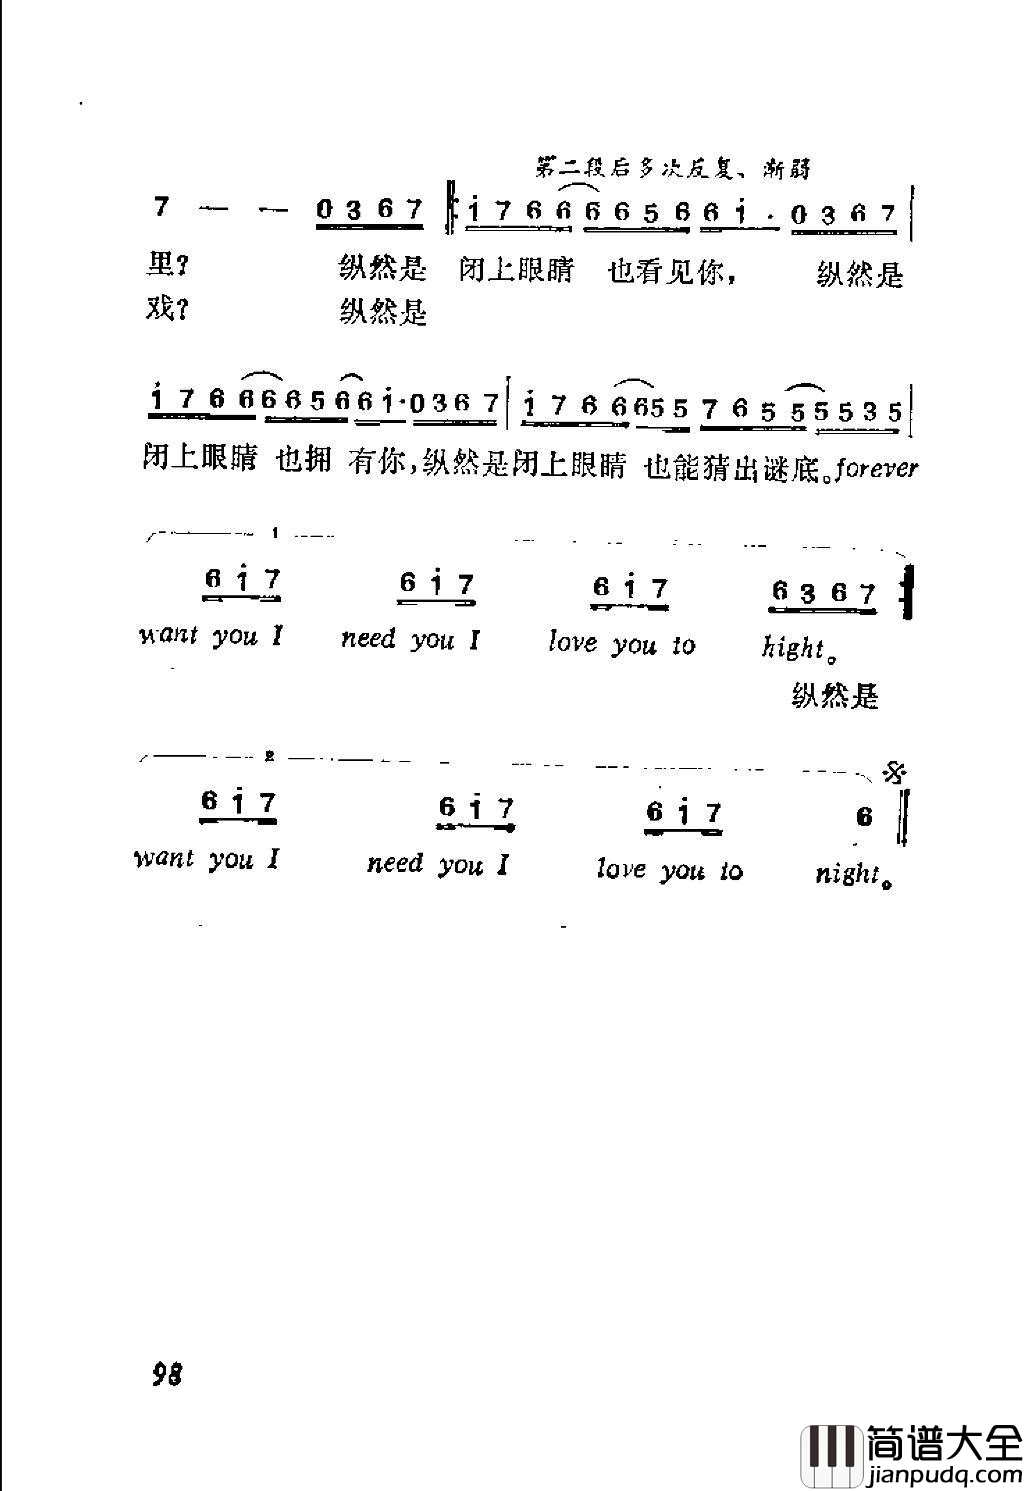 第二段后多次反复、渐弱
7 — — 0 3 6 7 i 7 6 6 6 6 5 6 6 i · 0 3 6 7
里？ 纵然是 闭上眼睛 也看见你， 纵然是
戏？ 纵然是
i 7 6 6 6 6 5 6 6 i · 0 3 6 7 i 7 6 6 6 5 5 7 6 5 5 5 5 3 5
闭上眼睛 也拥 有你，纵然是闭上眼睛 也能猜出谜底。forever
1
6 i 7 6 i 7 6 i 7 6 3 6 7
want you I need you I love you to hight。
纵然是
2
6 i 7 6 i 7 6 i 7 6
want you I need you I love you to night。
98
简谱大全
jianpudq.com